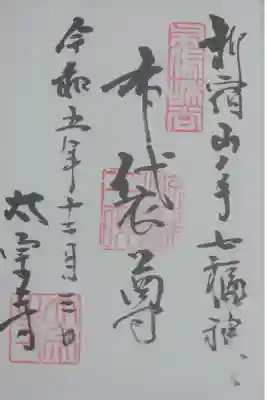 新宿山ノ手七福神
布袋尊
令和五年十二月三日
太宗寺